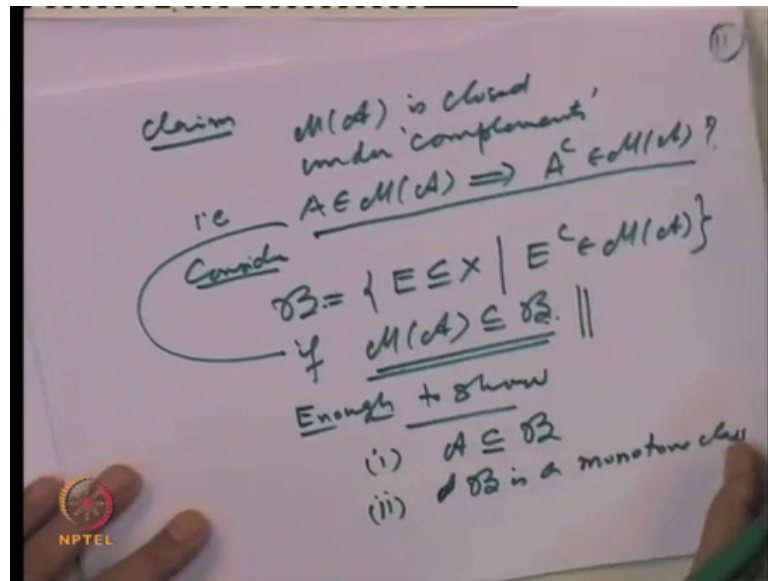 11
Claim M(A) is closed
under 'complements'
i.e A ∈ M(A) ⟹ A^c ∈ M(A) ?
Consider
B := { E ⊆ X | E^c ∈ M(A) }
if M(A) ⊆ B. ||
Enough to show
(i) A ⊆ B
(ii) B is a monotone class
NPTEL